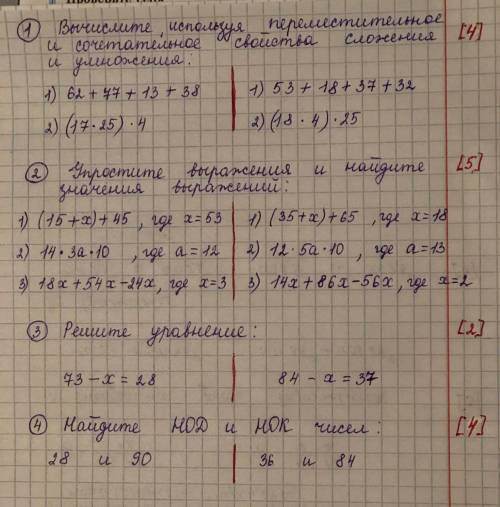 ① Вычислите, используя переместительное [4]
и сочетательное свойства сложения
и умножения:
1) 62 + 77 + 13 + 38
1) 53 + 18 + 37 + 32
2) (17 · 25) · 4
2) (18 · 4) · 25
② Упростите выражения и найдите [5]
значения выражений:
1) (15 + x) + 45, где x = 53
1) (35 + x) + 65, где x = 18
2) 14 · 3a · 10, где a = 12
2) 12 · 5a · 10, где a = 13
3) 18x + 54x - 24x, где x = 3
3) 14x + 86x - 56x, где x = 2
③ Решите уравнение: [2]
73 - x = 28
84 - x = 37
④ Найдите НОД и НОК чисел: [4]
28 и 90
36 и 84